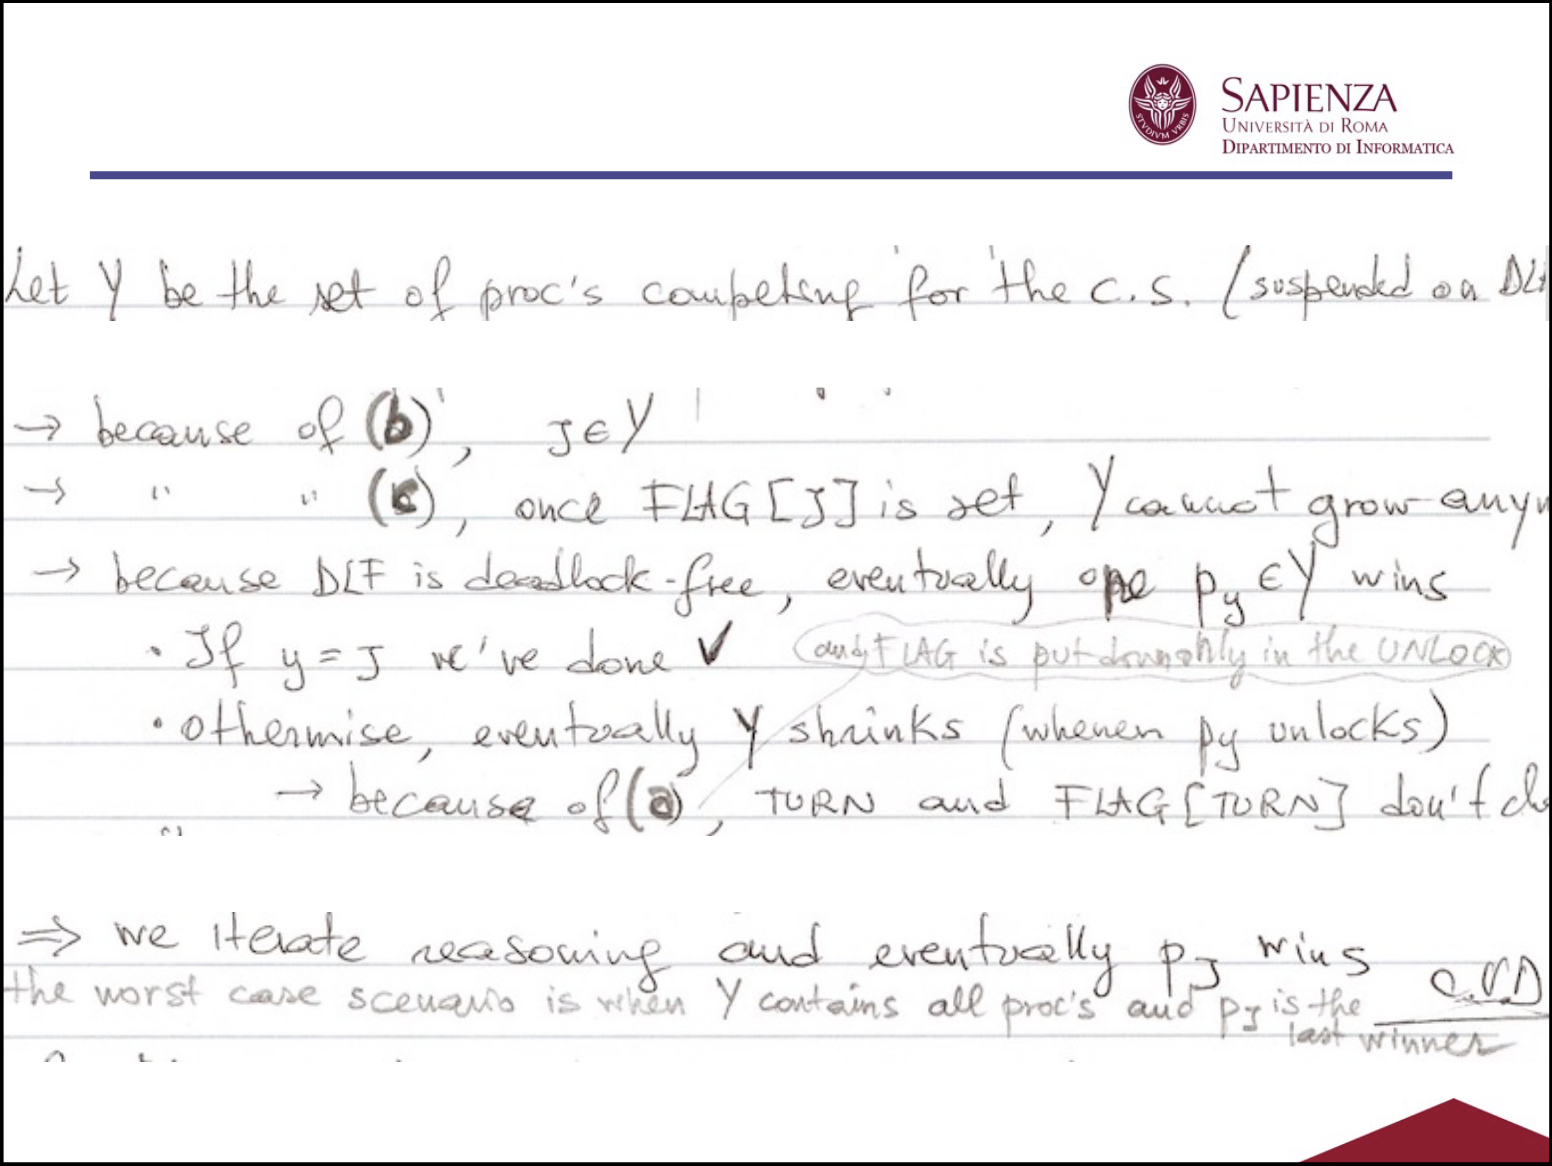 SAPIENZA
UNIVERSITÀ DI ROMA
DIPARTIMENTO DI INFORMATICA
STVDIVM VRBIS
Let Y be the set of proc's competing for the c.s. (suspended on DLF
→ because of (b), J∈Y
→ " " (c), once FLAG[J] is set, Y cannot grow anym
→ because DLF is deadlock-free, eventually one py∈Y wins
· If y=J we've done ✓ (and FLAG is put down only in the UNLOCK)
· otherwise, eventually Y shrinks (when py unlocks)
→ because of (a), TURN and FLAG[TURN] don't ch
⇒ we iterate reasoning and eventually pJ wins
C.V.D
the worst case scenario is when Y contains all proc's and pJ is the
last winner